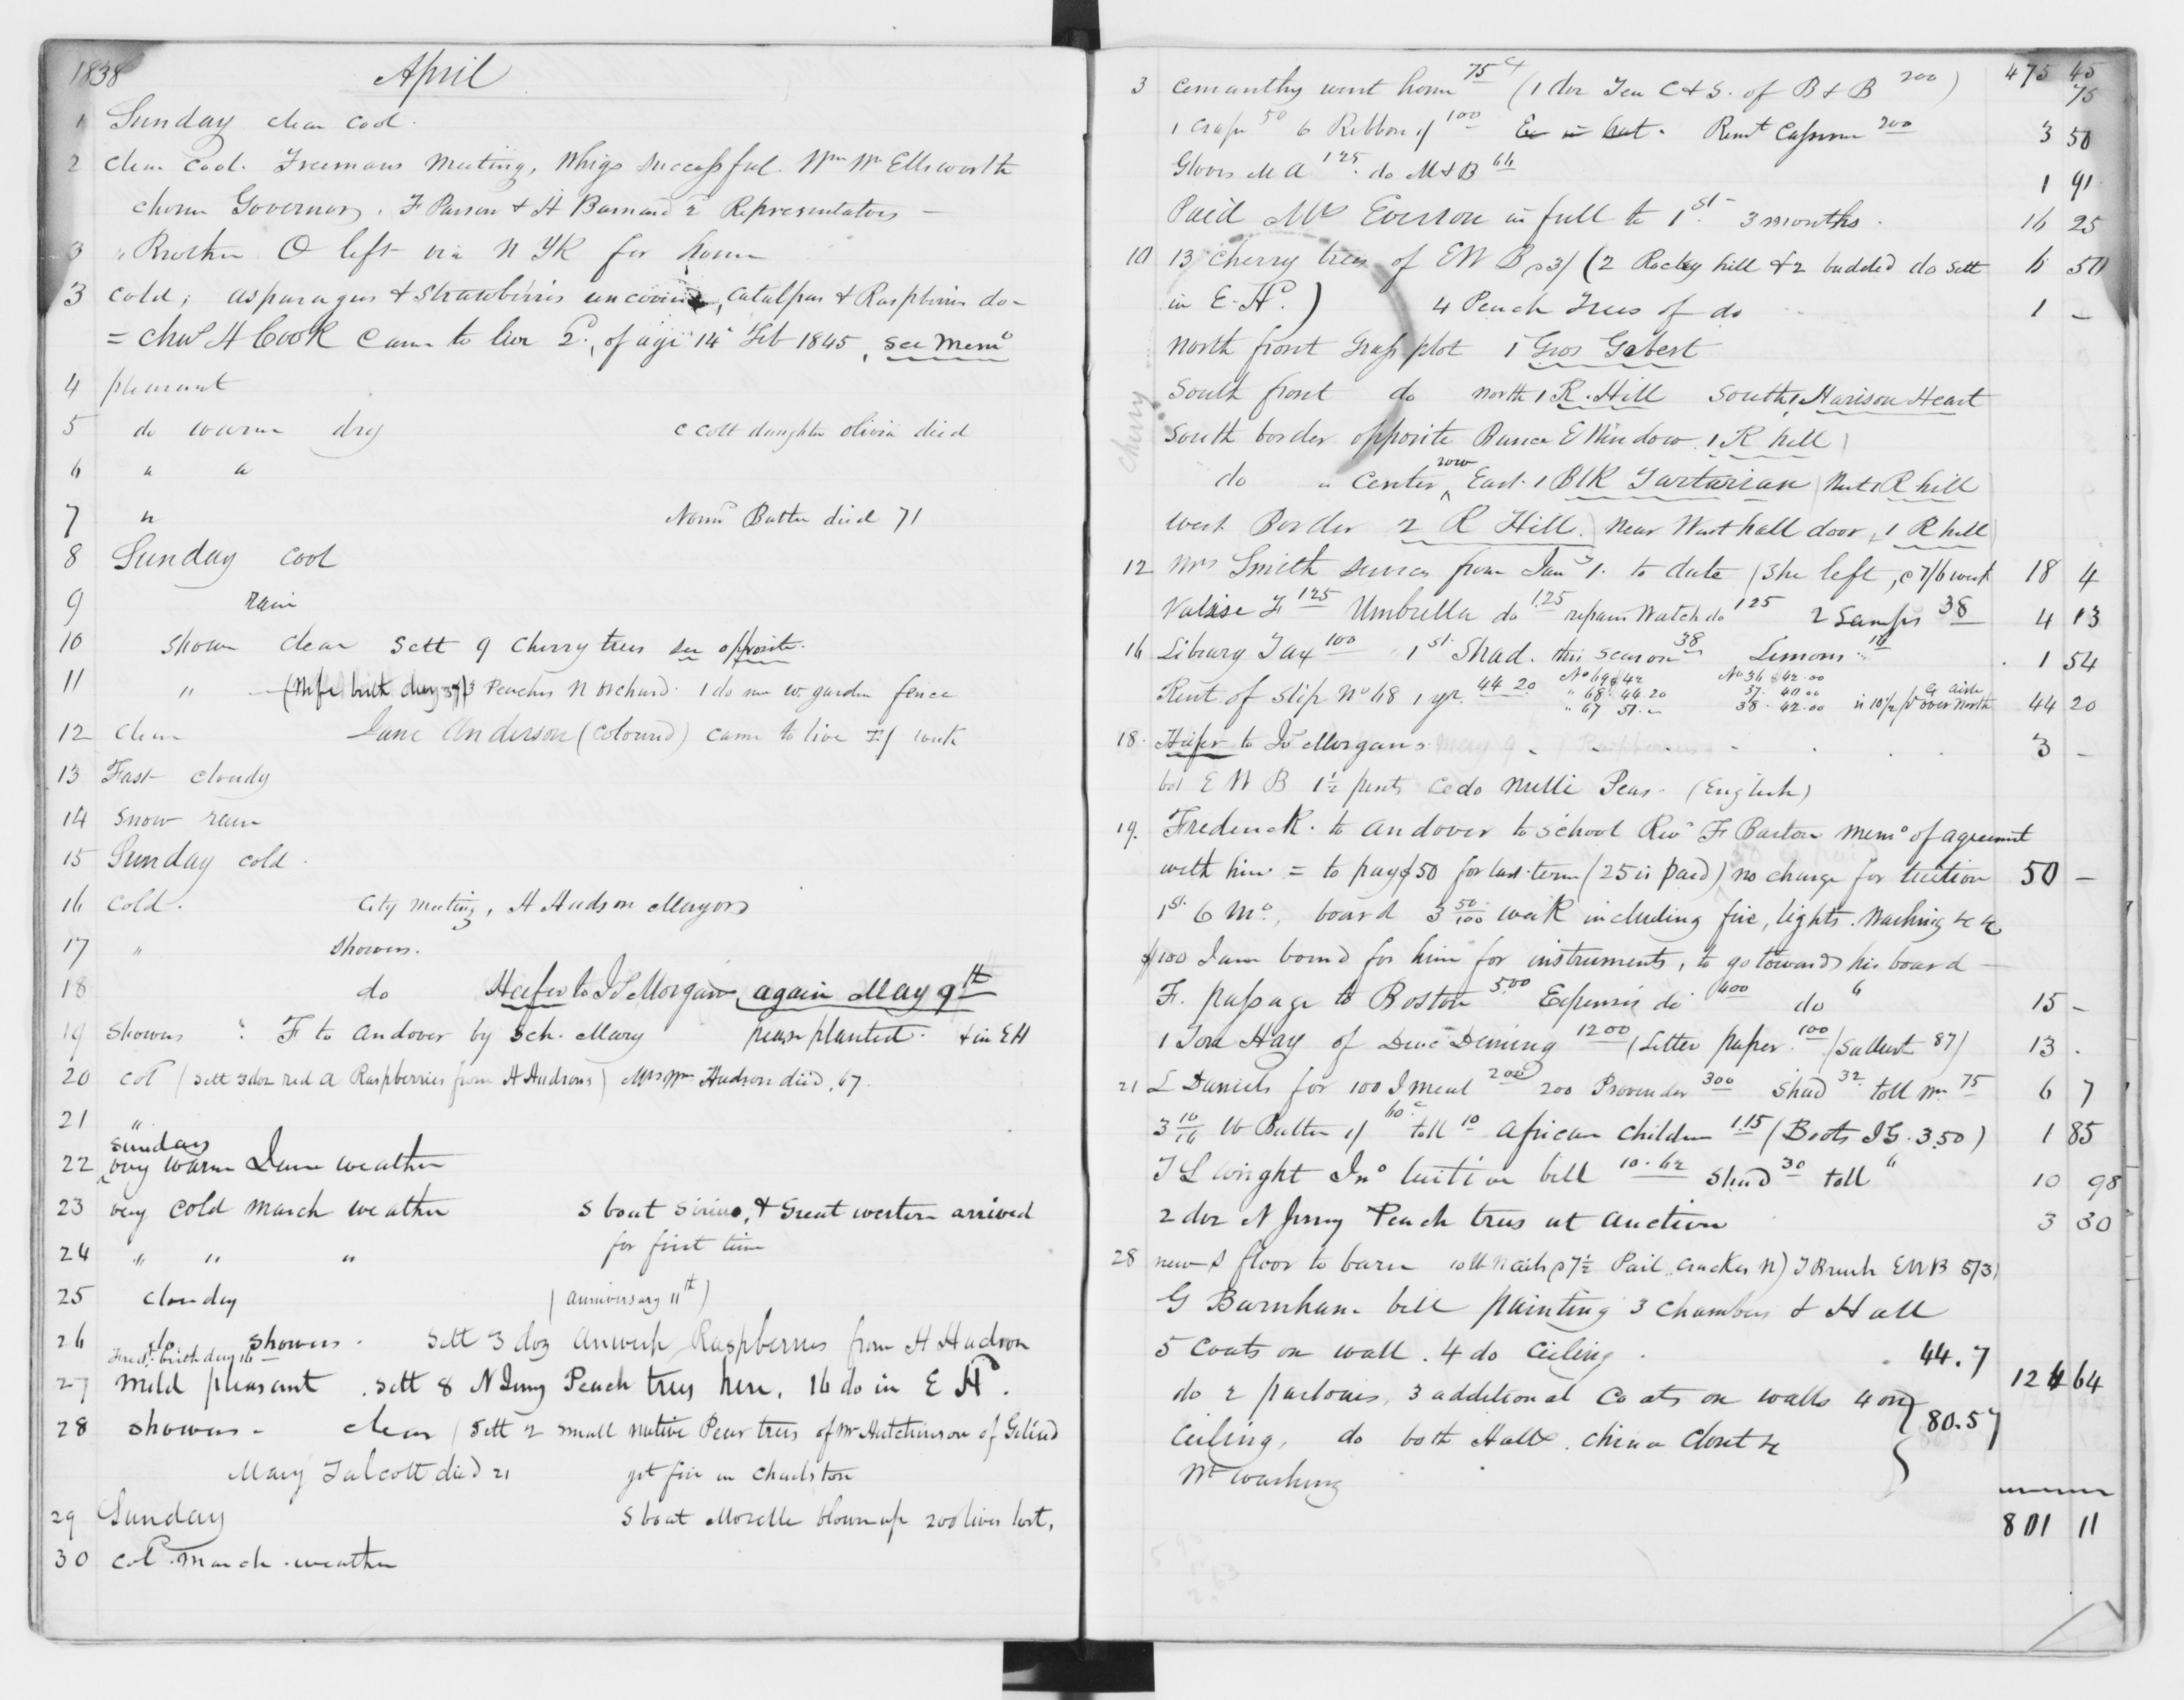 1838 April
1 Sunday clear cool.
2 clear cool. Freemans Meeting, Whigs Successful. Wm W Ellsworth
chosen Governor, F Parson & H Barnard 2 Representatives —
3 " Brother O left via N YK for home
3 cold; asparagus & strawberries uncovered, catalpas & Raspberries do -
= Chas H Cook came to live 2d, of age 14 Feb 1845, see Memo
4 pleasant
5 do warm dry C Colt daughter olivia died
6 " "
7 " Norm Butler died 71
8 Sunday cool
9 rain
10 shower clear Sett 9 Cherry trees see opposite.
11 " (Wife birth day 39) 3 Peaches N orchard. 1 do W garden fence
12 clear Jane Anderson (coloured) came to live week
13 Fast cloudy
14 Snow rain
15 Sunday cold.
16 cold. City meeting, H Hudson Mayor
17 " showers.
18 do Heifer to J S Morgans, again May 9th
19 showers F to Andover by Sch. Mary pease planted & in E H
20 col (Sett 3 doz red A Raspberries from H Hudsons) Mrs Wm Hudson died, 67.
21 "
Sunday
22 very warm June weather
23 very cold march weather S boat Sirius, & Great western arrived
24 " " " for first time
25 cloudy (anniversary 11th)
26 do showers. Sett 3 doz Antwerp Raspberries from H Hudson
Fred. birth day 16 —
27 mild pleasant. Sett 8 N Jersey Peach trees here, 16 do in E Hd.
28 showers - clear / Sett 2 small native Pear trees of Mr Hutchinson of Gilead
Mary Talcott died 21 gt fire in Charlston
29 Sunday S boat Moselle blown up 200 lives lost,
30 col. March weather
475 45
75
3 went home 75 c (1 doz Tea C & S. of B & B 200)
1 Crape 50 6 Ribbon 100 Remt 200 3 50
Gloves M A 125. do M & B 66 1 91
Paid Mrs Everson in full to 1st 3 months. 16 25
10 13 Cherry trees of E W B 3/ (2 Rocky hill & 2 budded do sett 6 50
in E. Hd.) 4 Peach Trees of do 1 —
North front Grass plot 1 Gros Gobert
South front do north 1 R. Hill South 1 Harison Heart
Cherry
South border opposite E Window 1 R hill
do " Center row East. 1 Blk Tartarian R hill
West Border 2 R Hill. Near West hall door, 1 R hill
12 Mrs Smith services from Jany 1. to date (she left, @ 7/6 week 18 4
Valise F 125 Umbrella do 1.25 repairs Watch do 125 2 Lamps 38 4 13
16 Library Tax 100 1st Shad. this season 38 Lemons 16 1 54
No 69 $42 No 36 $42.00
Rent of slip No 68 1 yr. 44 20 " 68. 44.20 37. 40.00 44 20
" 67 51. 38. 42.00
18. Heifer to Js Morgans 3 —
bot E W B 1½ pints Cedo Nulli Peas. (English)
19. Frederick. to Andover to School Revd F Barton Memo of agreement
with him = to pay $50 for last term (25 is paid) no charge for tuition 50 —
1st 6 Mo., board 3 50/100 week including fire, lights. Washing &c &c
$100 I am bound for him for instruments, to go towards his board —
F. passage to Boston 500 Expenses do 400 do " 15 —
1 Ton Hay of Deac Deming 1200 (Letter paper 100 (Sallust 87) 13.
21 L Daniels for 100 I meal 200 200 Provender 300 Shad 32 toll 75 6 7
3 10/16 lb Butter toll 10 African children 1.15 (Boots J G. 3.50) 1 85
T L Wright Jno tuition bill 10.62 Shad 30 toll " 10 98
2 doz N Jersey Peach trees at Auction 3 30
28 new floor to barn 10 lb Nails @ 7½ Pail E W B 5/3)
G Burnham bill painting 3 Chambers & Hall
5 Coats on wall. 4 do Ceiling. 44.7
124 64
do 2 parlours, 3 additional Coats on walls 4 on
Ceiling, do both Halls. China Closet &c 80.57
Wt washing
801 11